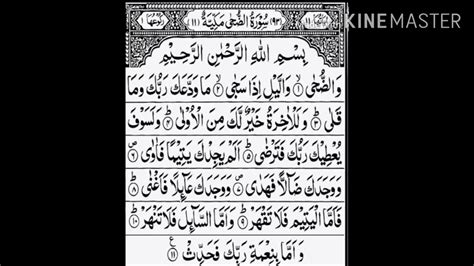 KINEMASTER
سُوْرَةُ الضُّحٰى مَكِّيَّةٌ (٩٣) (١١)
بِسْمِ اللّٰهِ الرَّحْمٰنِ الرَّحِيْمِ
وَالضُّحٰى ۝١ وَالَّيْلِ اِذَا سَجٰى ۝٢ مَا وَدَّعَكَ رَبُّكَ وَمَا
قَلٰى ۝٣ وَلَلْاٰخِرَةُ خَيْرٌ لَّكَ مِنَ الْاُوْلٰى ۝٤ وَلَسَوْفَ
يُعْطِيْكَ رَبُّكَ فَتَرْضٰى ۝٥ اَلَمْ يَجِدْكَ يَتِيْمًا فَاٰوٰى ۝٦
وَوَجَدَكَ ضَآلًّا فَهَدٰى ۝٧ وَوَجَدَكَ عَآئِلًا فَاَغْنٰى ۝٨
فَاَمَّا الْيَتِيْمَ فَلَا تَقْهَرْ ۝٩ وَاَمَّا السَّآئِلَ فَلَا تَنْهَرْ ۝١٠
وَاَمَّا بِنِعْمَةِ رَبِّكَ فَحَدِّثْ ۝١١